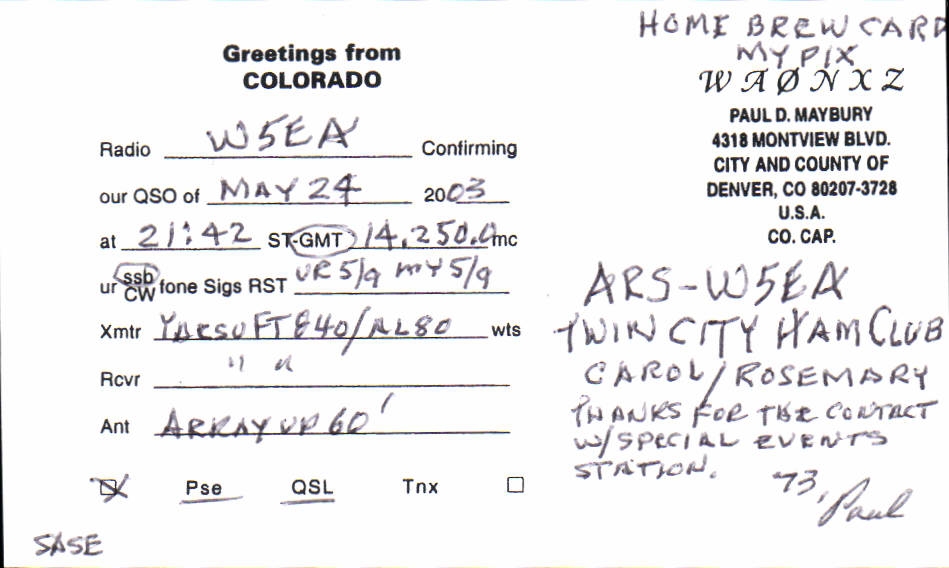 HOME BREW CARD
MY PIX
Greetings from
COLORADO
WAØNXZ
PAUL D. MAYBURY
4318 MONTVIEW BLVD.
CITY AND COUNTY OF
DENVER, CO 80207-3728
U.S.A.
CO. CAP.
Radio W5EA Confirming
our QSO of MAY 24 2003
at 21:42 ST-GMT 14,250.0mc
ur ssb CW fone Sigs RST UR 5/9 MY 5/9
Xmtr YAESU FT 840/AL80 wts
Rcvr " "
Ant ARRAY UP 60'
Pse QSL Tnx
SASE
ARS-W5EA
TWIN CITY HAM CLUB
CAROL/ROSEMARY
THANKS FOR THE CONTACT
W/SPECIAL EVENTS
STATION.
73, Paul